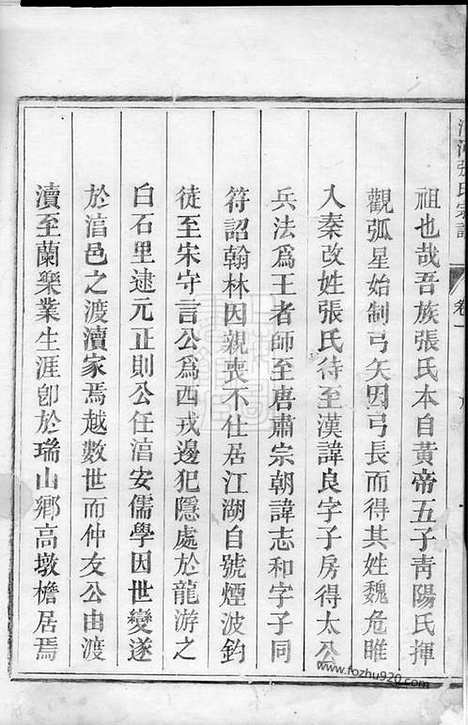 張氏宗譜
卷一
祖也哉吾族張氏本自黃帝五子青陽氏揮
觀弧星始制弓矢因弓長而得其姓魏危睢
入秦改姓張氏待至漢諱良字子房得太公
兵法爲王者師至唐肅宗朝諱志和字子同
符詔翰林因親喪不仕居江湖自號煙波釣
徒至宋守言公爲西戎邊犯隱處於龍游之
白石里逮元正則公任湻安儒學因世變遂
於湻邑之渡瀆家焉越數世而仲友公由渡
瀆至蘭樂業生涯卽於瑞山鄉高墩檐居焉
www.fozhu920.com